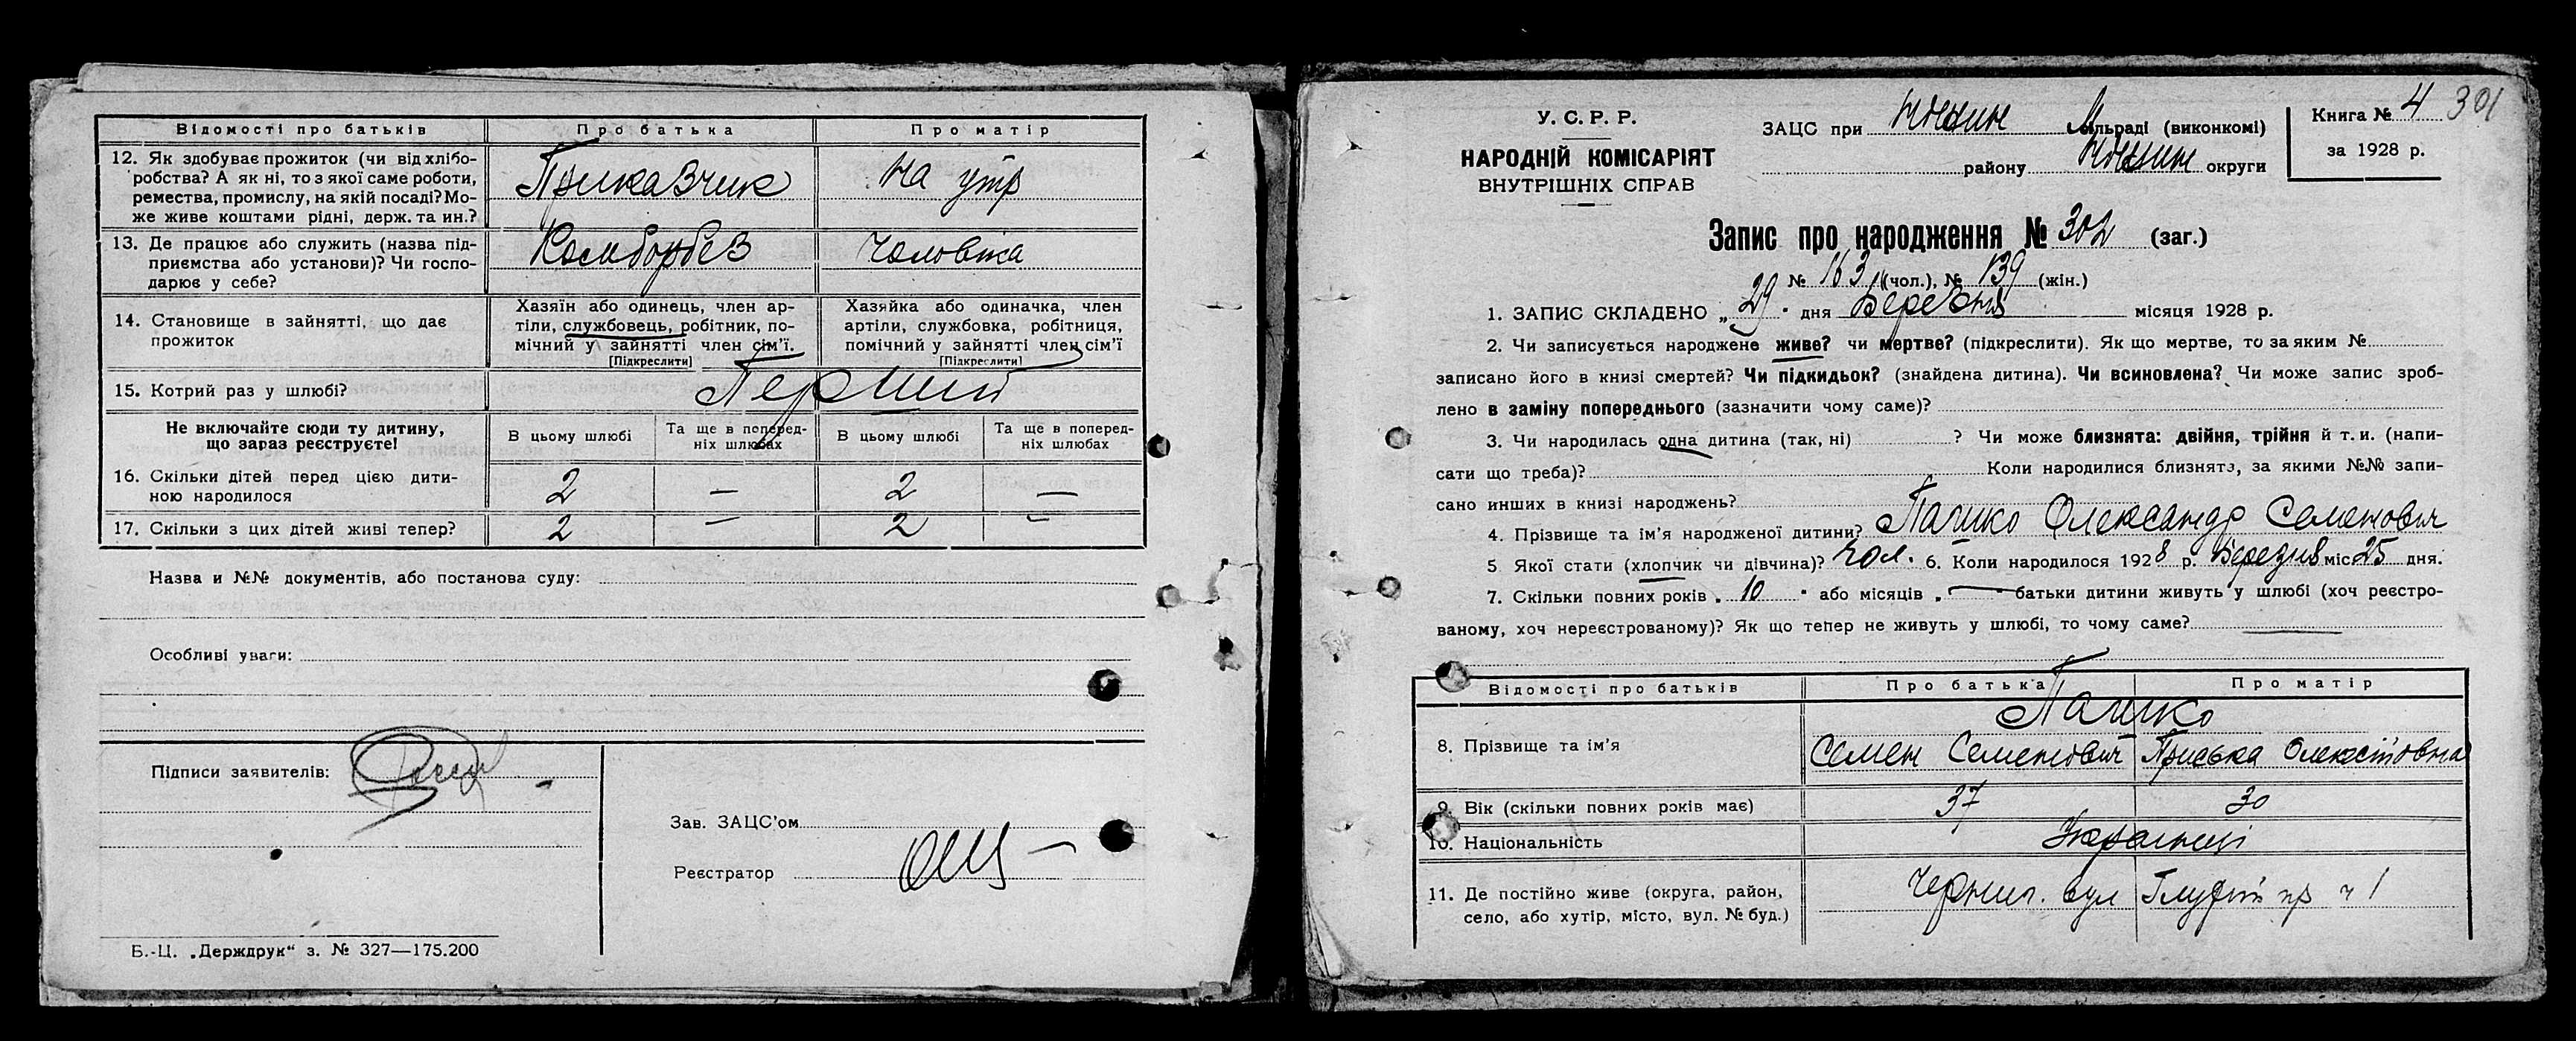 Відомості про батьків Про батька Про матір
12. Як здобуває прожиток (чи від хлібо-
робства? А як ні, то з якої саме роботи,
ремества, промислу, на якій посаді? Мо-
же живе коштами рідні, держ. та ин.?
Приказчик
на утр
13. Де працює або служить (назва під-
приємства або установи)? Чи госпо-
дарює у себе?
Комборбез
Чоловіка
14. Становище в зайнятті, що дає
прожиток
Хазяїн або одинець, член ар-
тіли, службовець, робітник, по-
мічний у зайнятті член сім'ї.
[Підкреслити]
Хазяйка або одиначка, член
артіли, службовка, робітниця,
помічний у зайнятті член сім'ї
[Підкреслити]
15. Котрий раз у шлюбі? Перший
Не включайте сюди ту дитину,
що зараз реєструєте!
В цьому шлюбі
Та ще в поперед-
ніх шлюбах
В цьому шлюбі
Та ще в поперед-
ніх шлюбах
16. Скільки дітей перед цією дити-
ною народилося
2 — 2 —
17. Скільки з цих дітей живі тепер? 2 — 2 —
Назва и №№ документів, або постанова суду:
Особливі уваги:
Підписи заявителів:
Зав. ЗАЦС'ом
Реєстратор
Б.-Ц. „Держдрук“ з. № 327—175.200
У. С. Р. Р.
НАРОДНІЙ КОМІСАРІЯТ
ВНУТРІШНІХ СПРАВ
ЗАЦС при Ніжин М сільраді (виконкомі)
району Ніжин округи
Книга № 4 301
за 1928 р.
Запис про народження № 302 (заг.)
№ 163 (чол.), № 139 (жін.)
1. ЗАПИС СКЛАДЕНО „ 29 " дня Березня місяця 1928 р.
2. Чи записується народжене живе? чи мертве? (підкреслити). Як що мертве, то за яким №
записано його в книзі смертей? Чи підкидьок? (знайдена дитина). Чи всиновлена? Чи може запис зроб-
лено в заміну попереднього (зазначити чому саме)?
3. Чи народилась одна дитина (так, ні) ? Чи може близнята: двійня, трійня й т. и. (напи-
сати що треба)? Коли народилися близнята, за якими №№ запи-
сано инших в книзі народжень?
4. Прізвище та ім'я народженої дитини? Пашко Олександр Семенович
5 Якої стати (хлопчик чи дівчина)? чол. 6. Коли народилося 1928 р. Березня міс 25 дня.
7. Скільки повних років „ 10 " або місяців „ — батьки дитини живуть у шлюбі (хоч реєстро-
ваному, хоч нереєстрованому)? Як що тепер не живуть у шлюбі, то чому саме? —
Відомості про батьків Про батька Про матір
Пашко
8. Прізвище та ім'я Семен Семенович Приська Олексіївна
9. Вік (скільки повних років має) 37 30
10. Національність Українці
11. Де постійно живе (округа, район,
село, або хутір, місто, вул. № буд.)
Черниг. вул Глухий пр ч 1